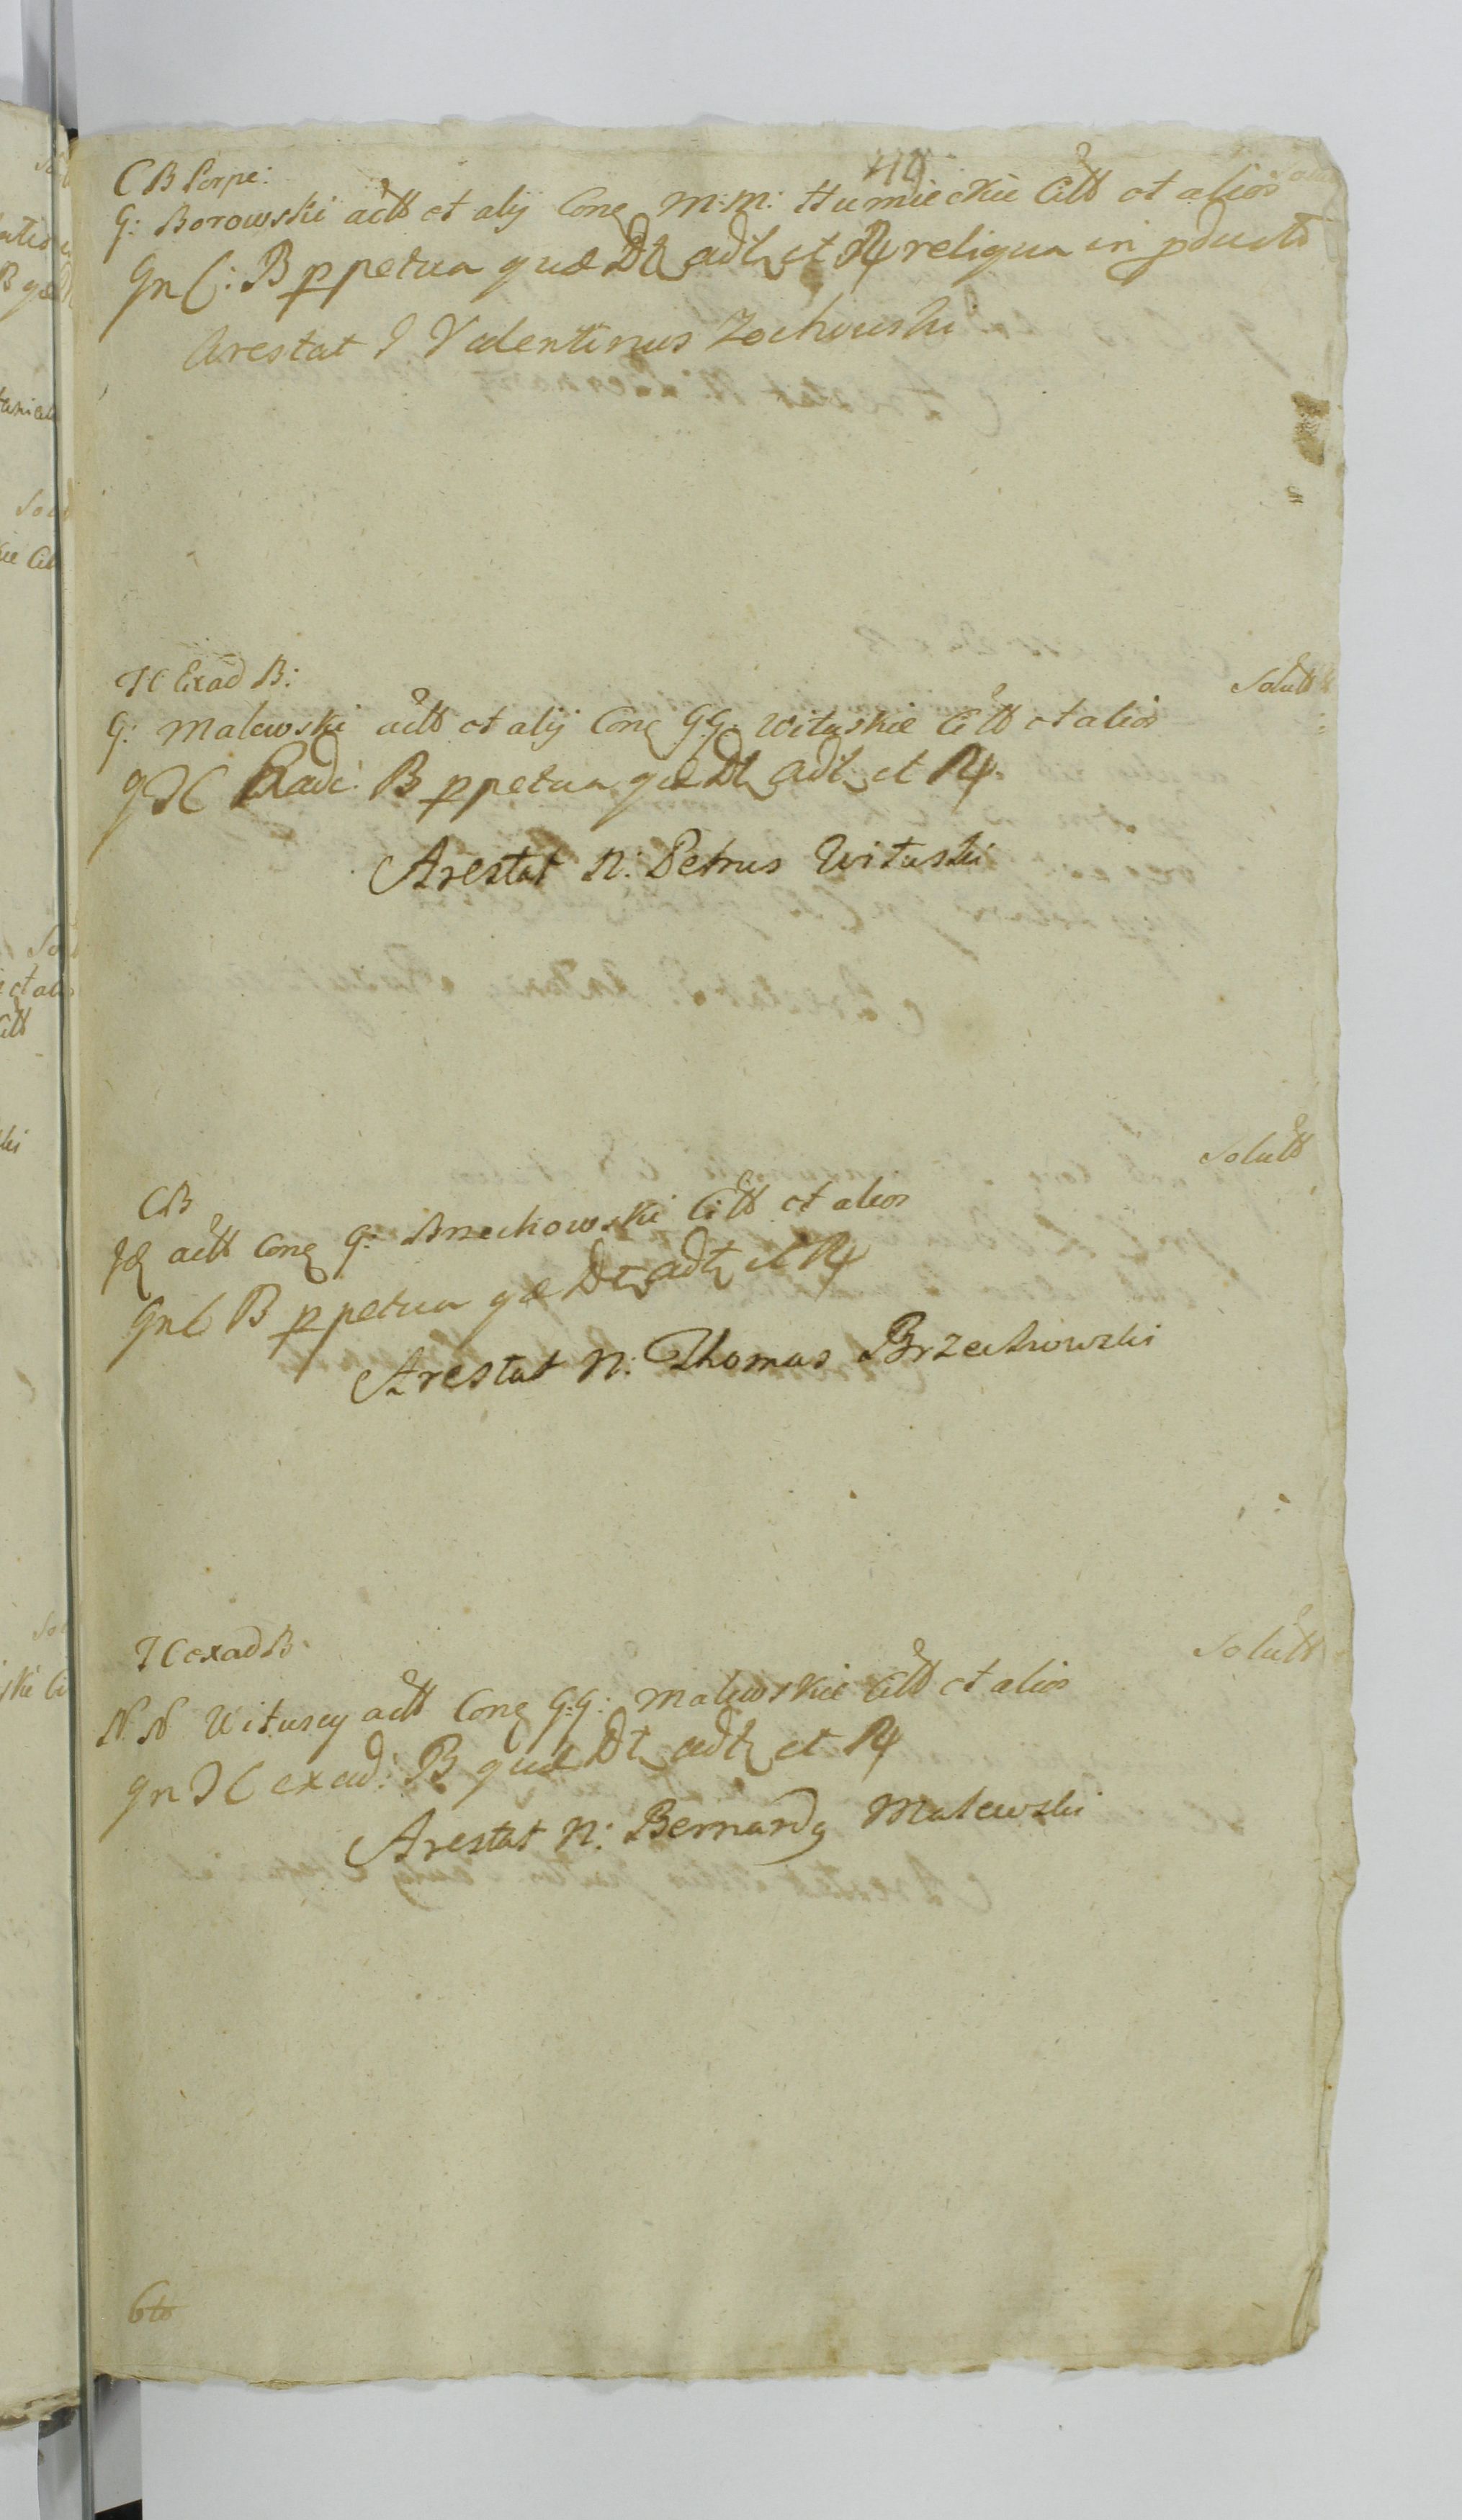 C B Perpe:
G: Borowski actt et alij Conq M: M: Humieckie Citt et alios
Gn C: B ppetua quæ Dt adt et Rq reliqua in pducto
Arestat G Valentinus Zochowski
H C Exad B:
Solutt
G: Malewski actt et alij Conq G.G. Wituskie Citt et alios
q H C Exad: B ppetua qæ Dt adt et Rq
Arestat N: Petrus Wituski
Solutt
C B
Id actt Conq G: Brzechowski Citt et alios
Gn C B ppetua qæ Dt adt et Rq
Arestat N: Thomas Brzechowski
H C exad B
Solutt
N. N Wituscy actt Conq G.G: Malewskie Citt et alios
qn H C exad: B quæ Dt adt et Rq
Arestat N: Bernardq Malewski
6to